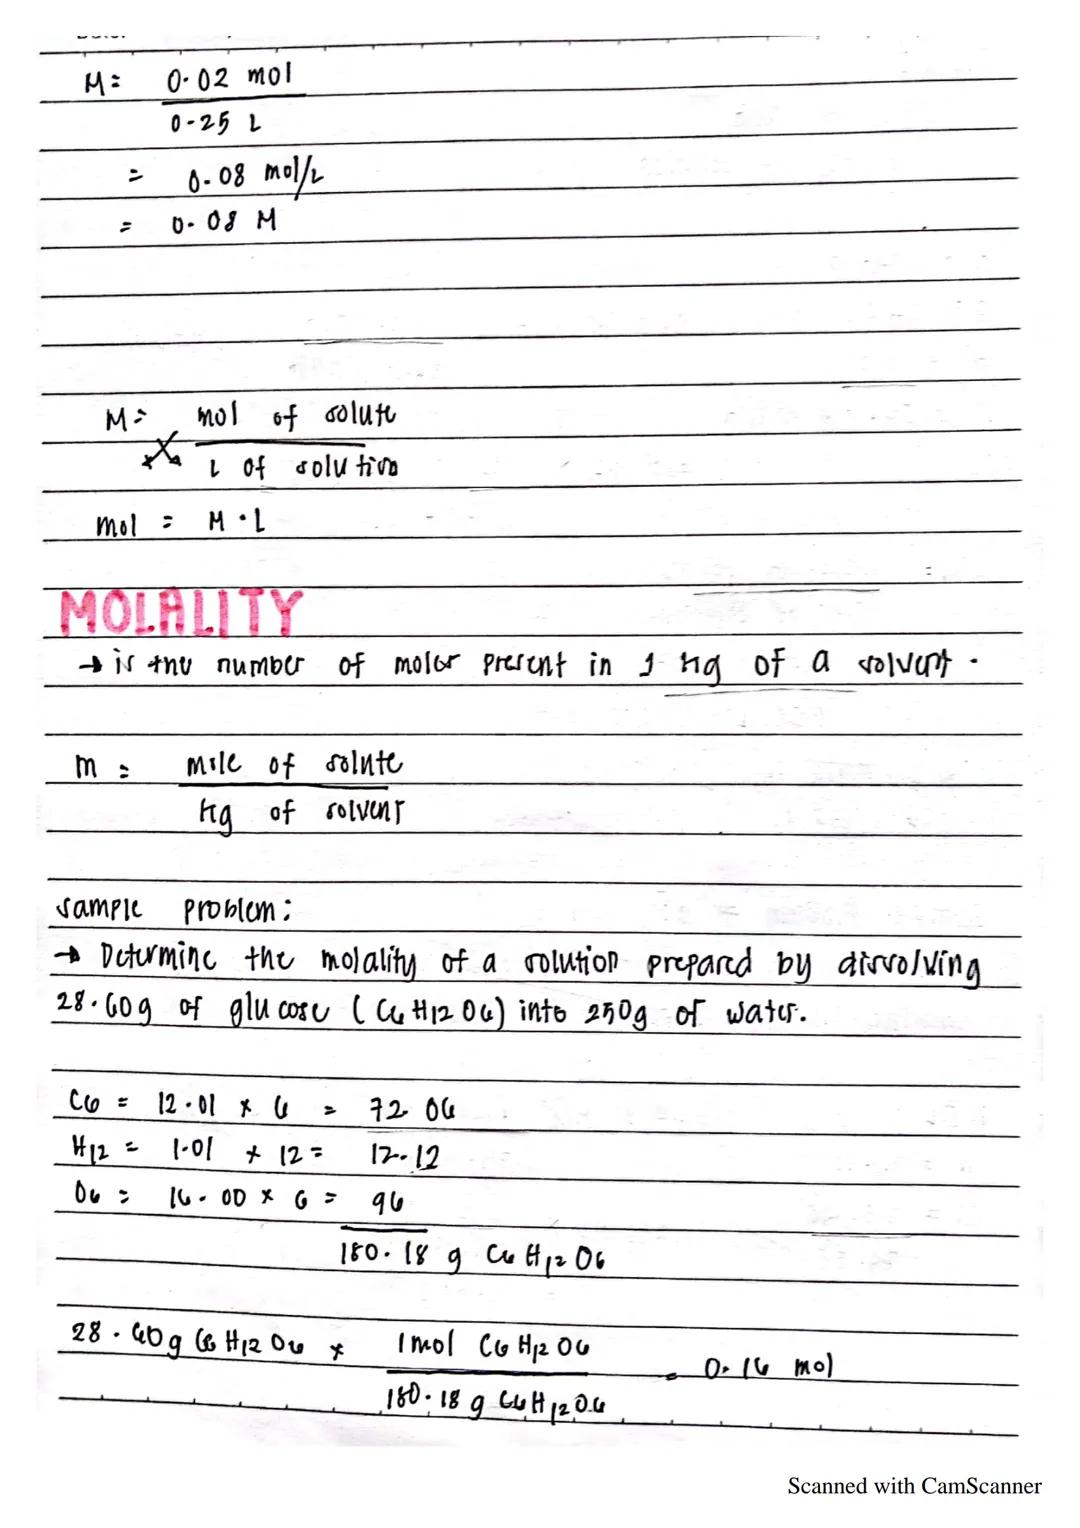 M = 0.02 mol
0.25 L
= 0.08 mol/L
= 0.08 M
M = mol of solute
L of solution
mol = M · L
MOLALITY
→ is the number of moles present in 1 kg of a solvent.
m = mole of solute
kg of solvent
sample problem:
→ Determine the molality of a solution prepared by dissolving
28.60g of glucose (C6H12O6) into 250g of water.
C6 = 12.01 × 6 = 72.06
H12 = 1.01 × 12 = 12.12
O6 = 16.00 × 6 = 96
180.18 g C6H12O6
28.60g C6H12O6 × 1 mol C6H12O6 = 0.16 mol
180.18 g C6H12O6
Scanned with CamScanner